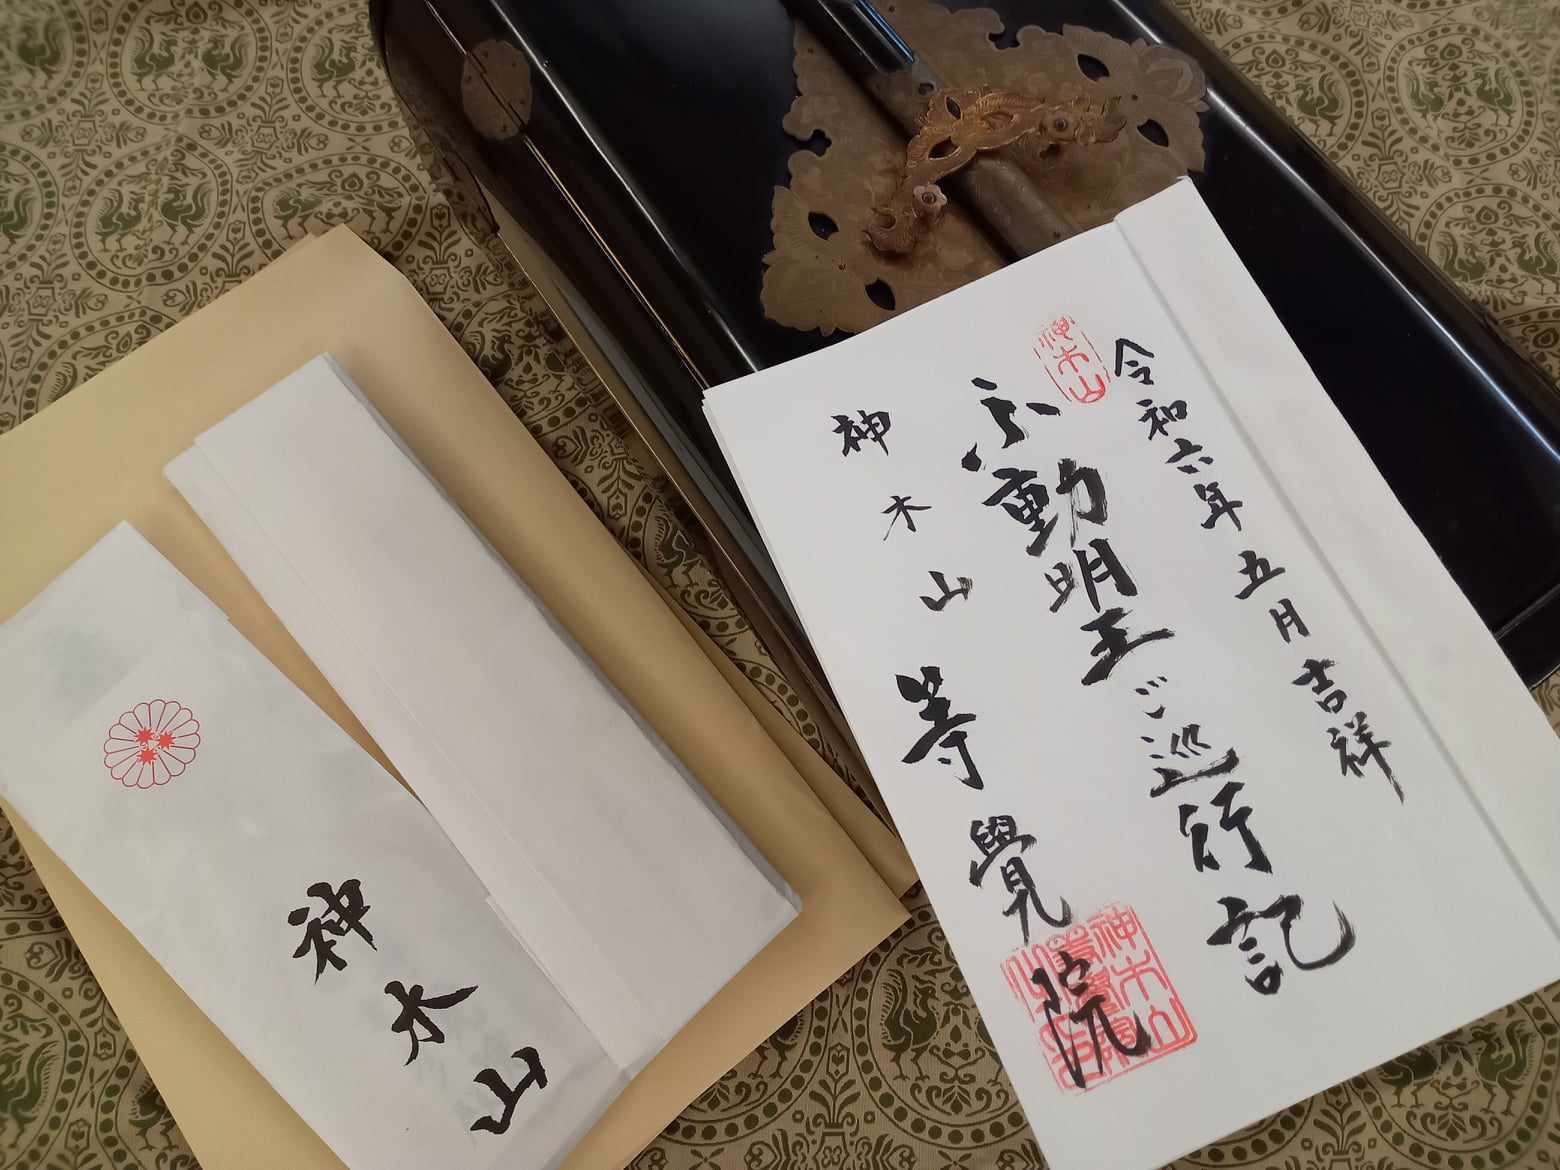 令和六年五月吉祥
神木山
不動明王ご巡行記
神木山等覺院
神木山
神木山